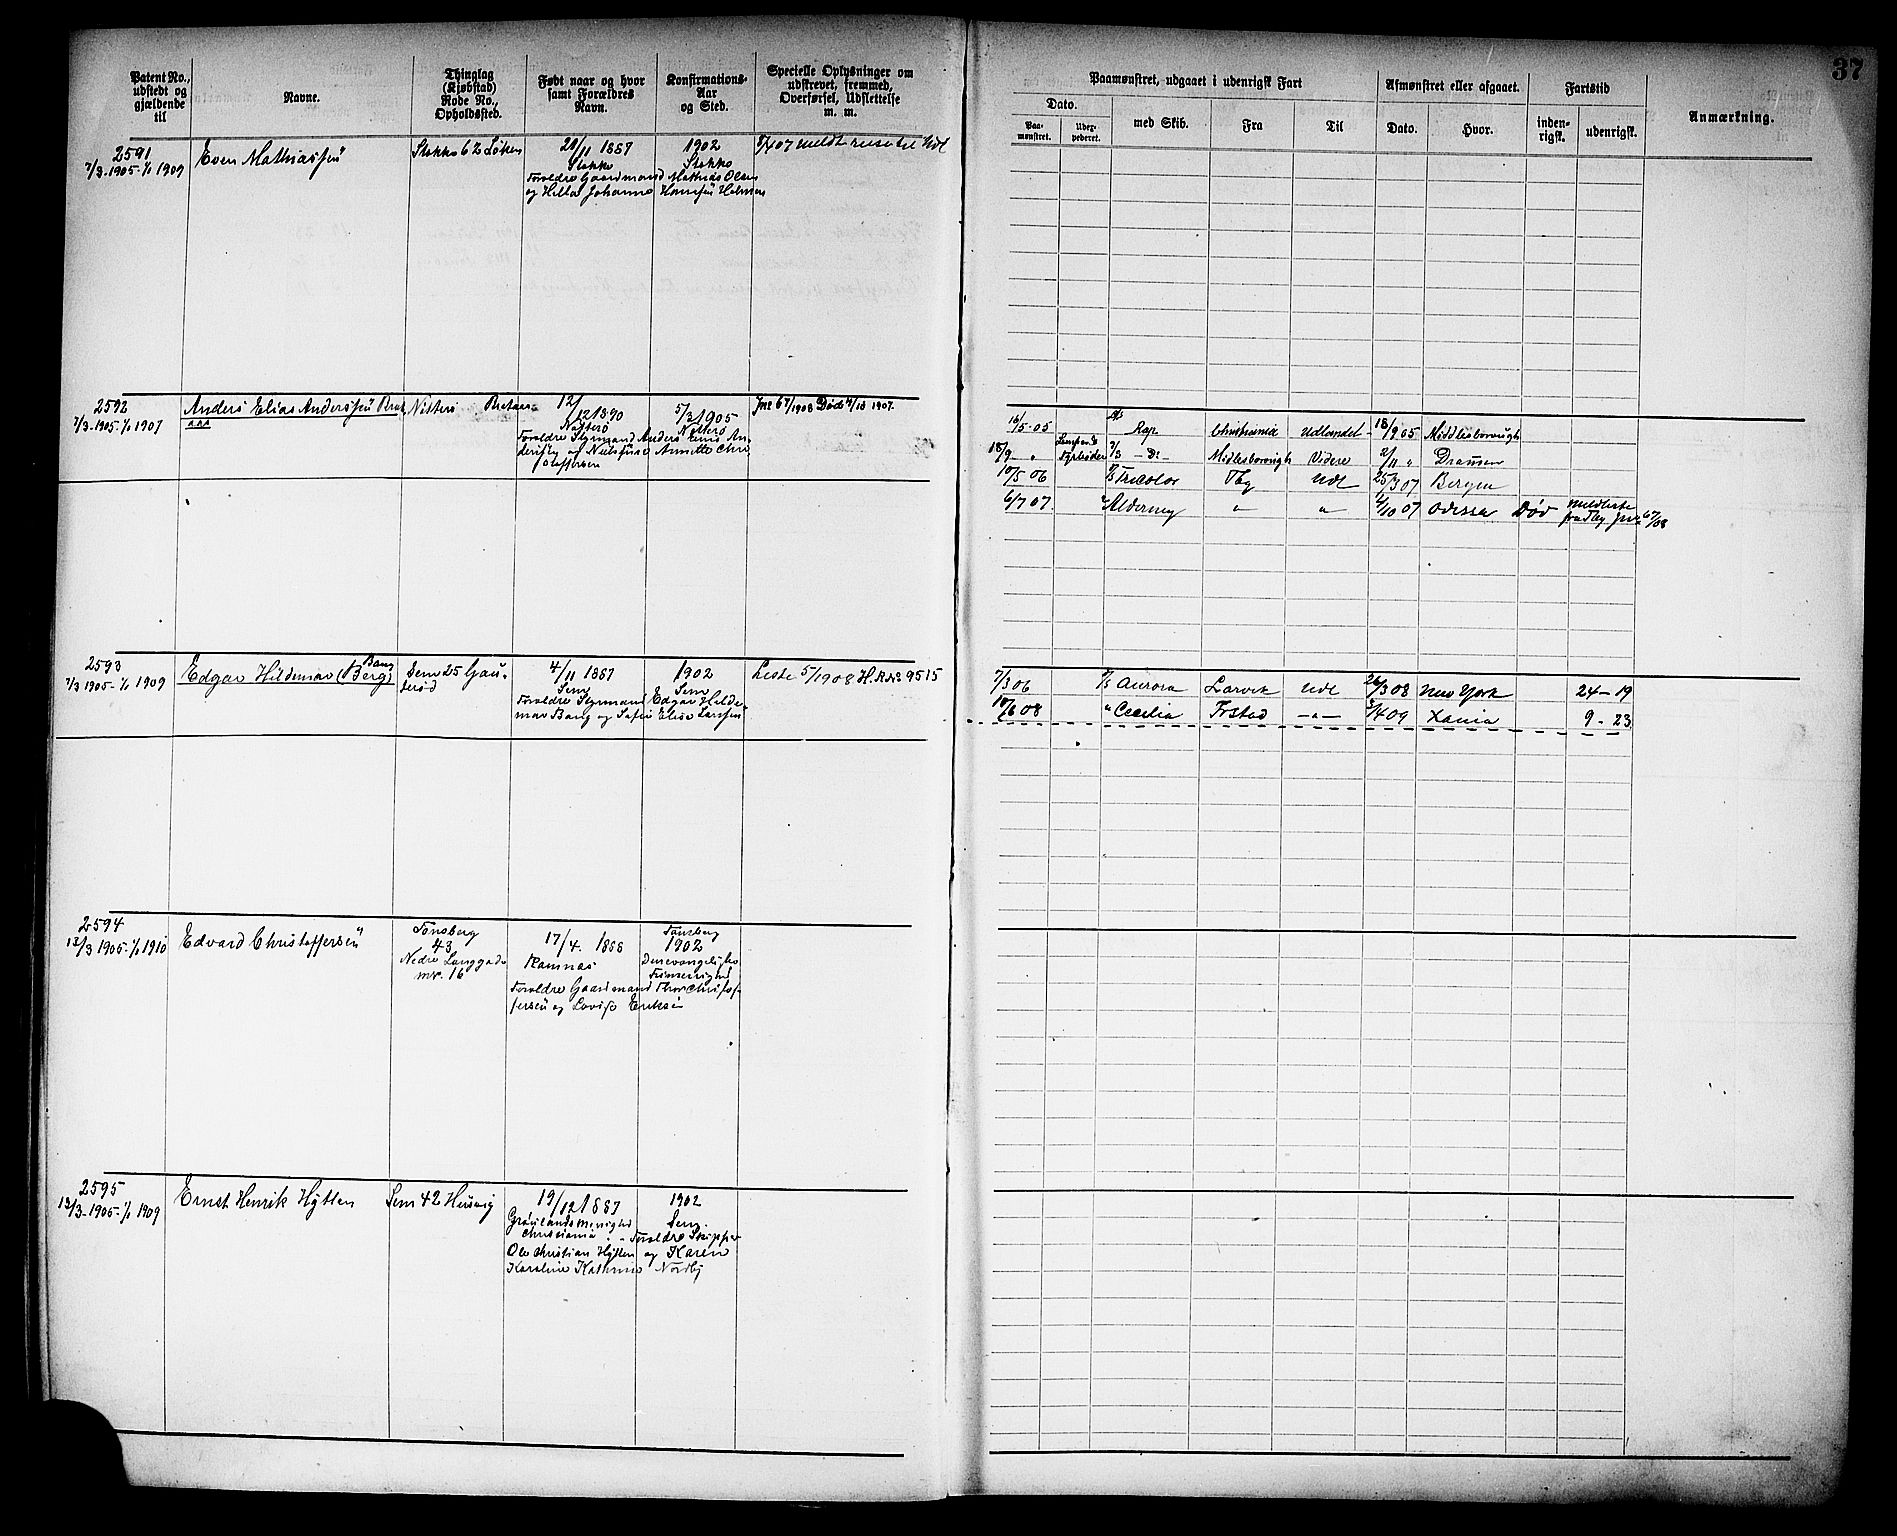 37
Patent No., udstedt og gjældende til
Navne.
Thinglag (Kjøbstad) Rode No., Opholdssted.
Født naar og hvor samt Forældres Navn.
Konfirmations-Aar og Sted.
Specielle Oplysninger om udskrevet, fremmed, Overførsel, Udslettelse m. m.
Paamønstret, udgaaet i udenrigsk Fart
Dato.
Paa-mønstret.
med Skib.
Fra
Til
Afmønstret eller afgaaet.
Dato.
Hvor.
Fartstid
inden-rigsk.
udenrigsk.
Anmærkning.
2591
7/3-1905-1/1 1909
Even Mathiassen
Stokke 62 Løken
1887
Stokke
1902
Stokke
meldt reise til Udl
Forældre Gaardmand Mathias Olsen
og Hilda Johanne
2592
7/3-1905-1/1 1907
Anders Elias Anderssen
Nøtterø
12/12 1890
Nøtterø
5/3 1905
Nøtterø
Jnr 67/1908 Død 4/10 1907.
Forældre Styrmand Anders Emil An-
derssen og Nielsine Annette Chri
stoffersen
16/5-05
Rap
Christiania
Udlandet
18/9 05
Middlesborough
18/9 - "
-D-
Midlesborough
Videre
2/11 "
Drammen
10/5 06
Tricolor
Tbg
Udl
25/3 07
Bergen
6/7 07
Alderney
"
"
4/10 07
Odessa
Død
Meldliste
fra Tbg Jnr 67/08
2593
7/3 1905-1/1 1909
Edgar Hildemar (Berg)
Bang
Sem 25 Gau-
terød
4/11 1887
Sem
1902
Sem
Liste 5/1908 H.R.No 9515
Forældre Styrmand Edgar Hilde-
mar Bang og Sofie Elise Larssen
7/3 06
Aurora
Larvik
Udl
26/3 08
New York
24-19
10/6 08
" Cecilia
Frstad
-"-
Xania
9-23
2594
13/3 1905-1/1 1910
Edvard Christoffersen
Tønsberg
43
Nedre Langgade
nr. 16
17/4. 1888
Ramnæs
Tønsberg
1902
Den evangeliske
Frimenighed
Forældre Gaardmand Thor Christof-
fersen og Lovise Eriksen
2595
13/3-1905-1/1 1909
Ernst Henrik Hytten
Sem 42 Husvig
19/12 1887
Grønlands Menighed
Christiania
1902
Sem.
Forældre Skipper
Ole Christian Hytten og Karen
Karoline Kathrine Nordby